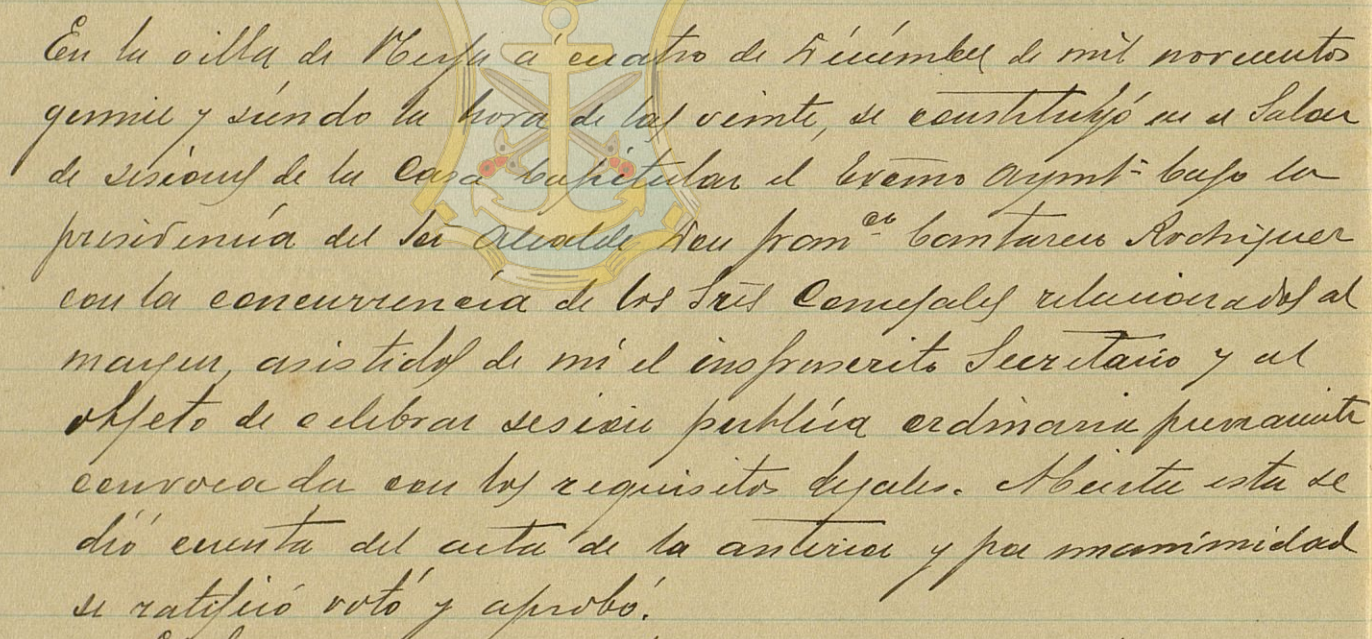 En la villa de Nerja a cuatro de Diciembre de mil novecientos
quince y siendo la hora de las veinte, se constituyó en el Salon
de sesiones de la Casa Capitular el Excmo Aymtº bajo la
presidencia del Sor Alcalde Don Franco Cantarero Rodriguez
con la concurrencia de los Sres Concejales relacionados al
margen, asistidos de mi el infrascrito Secretario y al
objeto de celebrar sesion publica ordinaria previamente
convocada con los requisitos legales. Abierta esta se
dió cuenta del acta de la anterior y por unanimidad
se ratificó votó y aprobó.